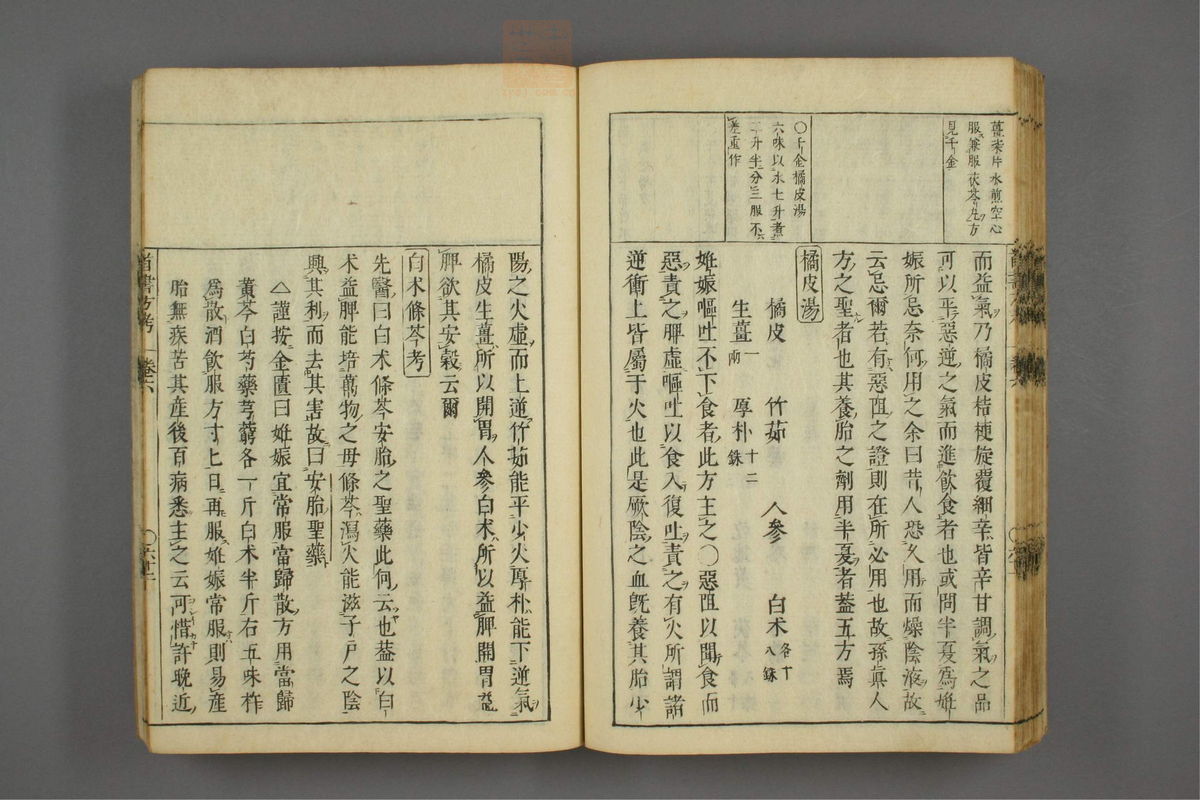 薑柒片水煎空心
服兼服茯苓丸方
見千金
〇千金橘皮湯
六味以水七升煮
二升半分三服不
差重作
而益氣乃橘皮桔梗旋覆細辛皆辛甘調氣之品
可以平惡逆之氣而進飲食者也或問半夏爲姙
娠所忌奈何用之余曰昔人恐久用而燥陰液故
云忌爾若有惡阻之證則在所必用也故孫眞人
方之聖者也其養胎之劑用半夏者蓋五方焉
橘皮湯
橘皮 竹茹 人參 白朮各十八銖
生薑一兩 厚朴十二銖
姙娠嘔吐不下食者此方主之〇惡阻以聞食而
惡責之脾虛嘔吐以食入復吐責之有火所謂諸
逆衝上皆屬于火也此是厥陰之血旣養其胎少
陽之火虛而上逆竹茹能平少火厚朴能下逆氣
橘皮生薑所以開胃人參白朮所以益脾開胃益
脾欲其安穀云爾
白朮條芩考
先醫曰白朮條芩安胎之聖藥此何云也蓋以白
朮益脾能培萬物之母條芩瀉火能滋子戶之陰
興其利而去其害故曰安胎聖藥
△謹按金匱曰姙娠宜常服當歸散方用當歸
黃芩白芍藥芎藭各一斤白朮半斤右五味杵
爲散酒飲服方寸匕日再服姙娠常服則易產
胎無疾苦其產後百病悉主之云可惜許晚近
醫書方考
卷六